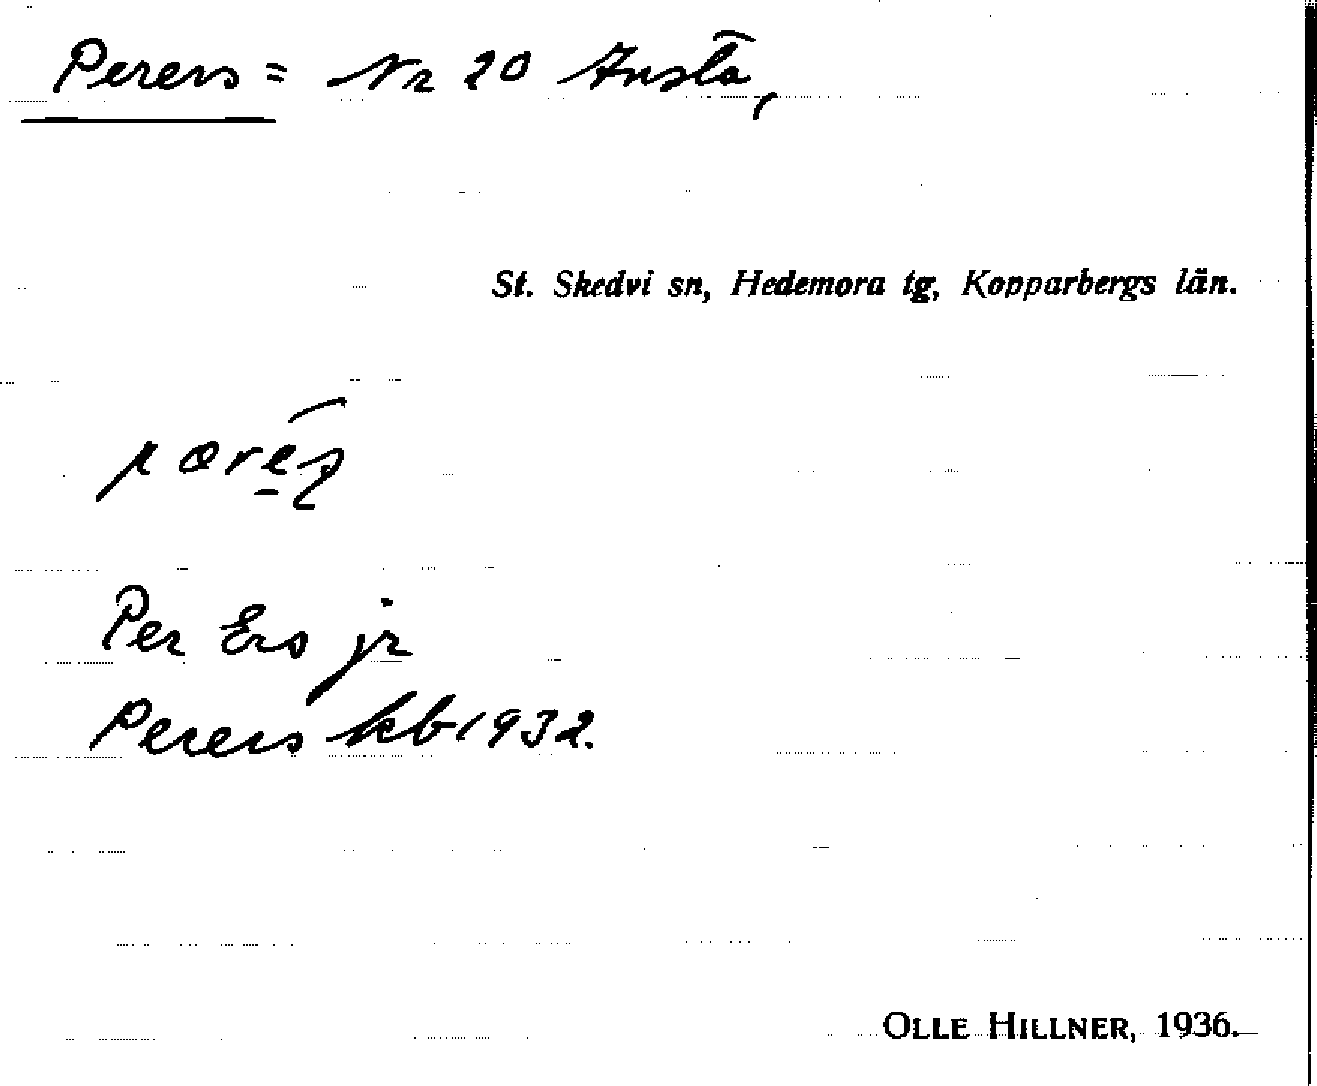 Perers = Nr 20 Ansta,
St. Skedvi sn, Hedemora tg, Kopparbergs län.
Per Ers jr
Perers kb 1932.
OLLE HILLNER, 1936.